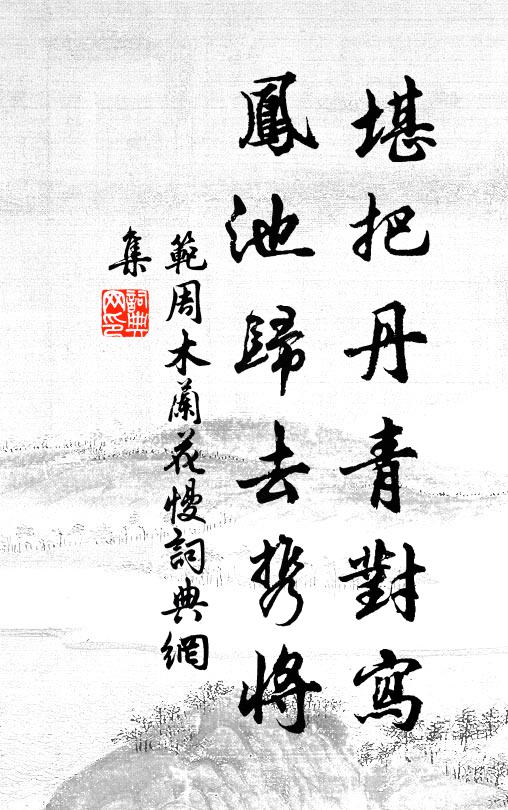 堪把丹青對寫
鳳池歸去携將
範周木蘭花慢詞典網
集
詞典网印